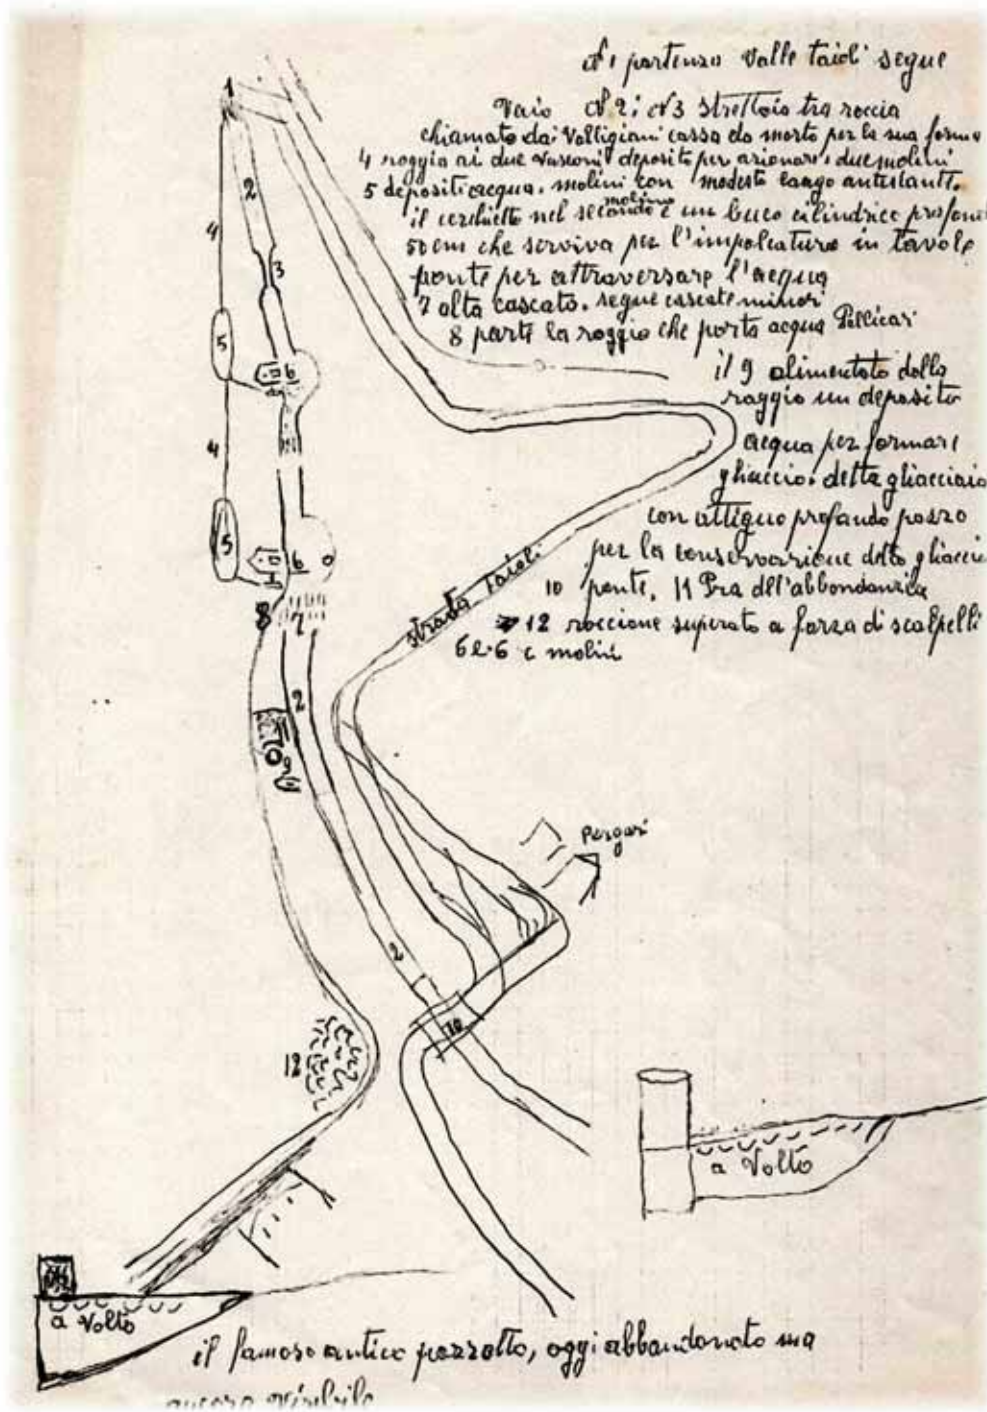 N 1 partenza Valle taioli segue
Vaio N 2; N 3 strettoia tra roccia
chiamato dai Valligiani cassa da morto per la sua forma
4 roggia ai due vasconi deposito per azionare i due molini
5 depositi acqua. molini con modesto largo antistante.
molino
il cerchietto nel secondo è un buco cilindrico profon
50 cm che serviva per l'impalcatura in tavole
ponte per attraversare l'acqua
7 alta cascata. segue cascate minori
8 parte la roggia che porta acqua Pellicari
il 9 alimentato dalla
roggia un deposito
acqua per formare
ghiaccio. detta ghiacciaia
con attiguo profondo pozzo
per la conservazione dello ghiaccio
10 ponte. 11 Pra dell'abbondanza
12 roccione superato a forza di scalpelli
6 e 6 i molini
1
2
4
3
5
6
4
5
6
8
7
strada taioli
2
9
Pergari
2
10
12
a Volto
a Volto
il famoso antico pozzetto, oggi abbandonato ma
ancora visibile